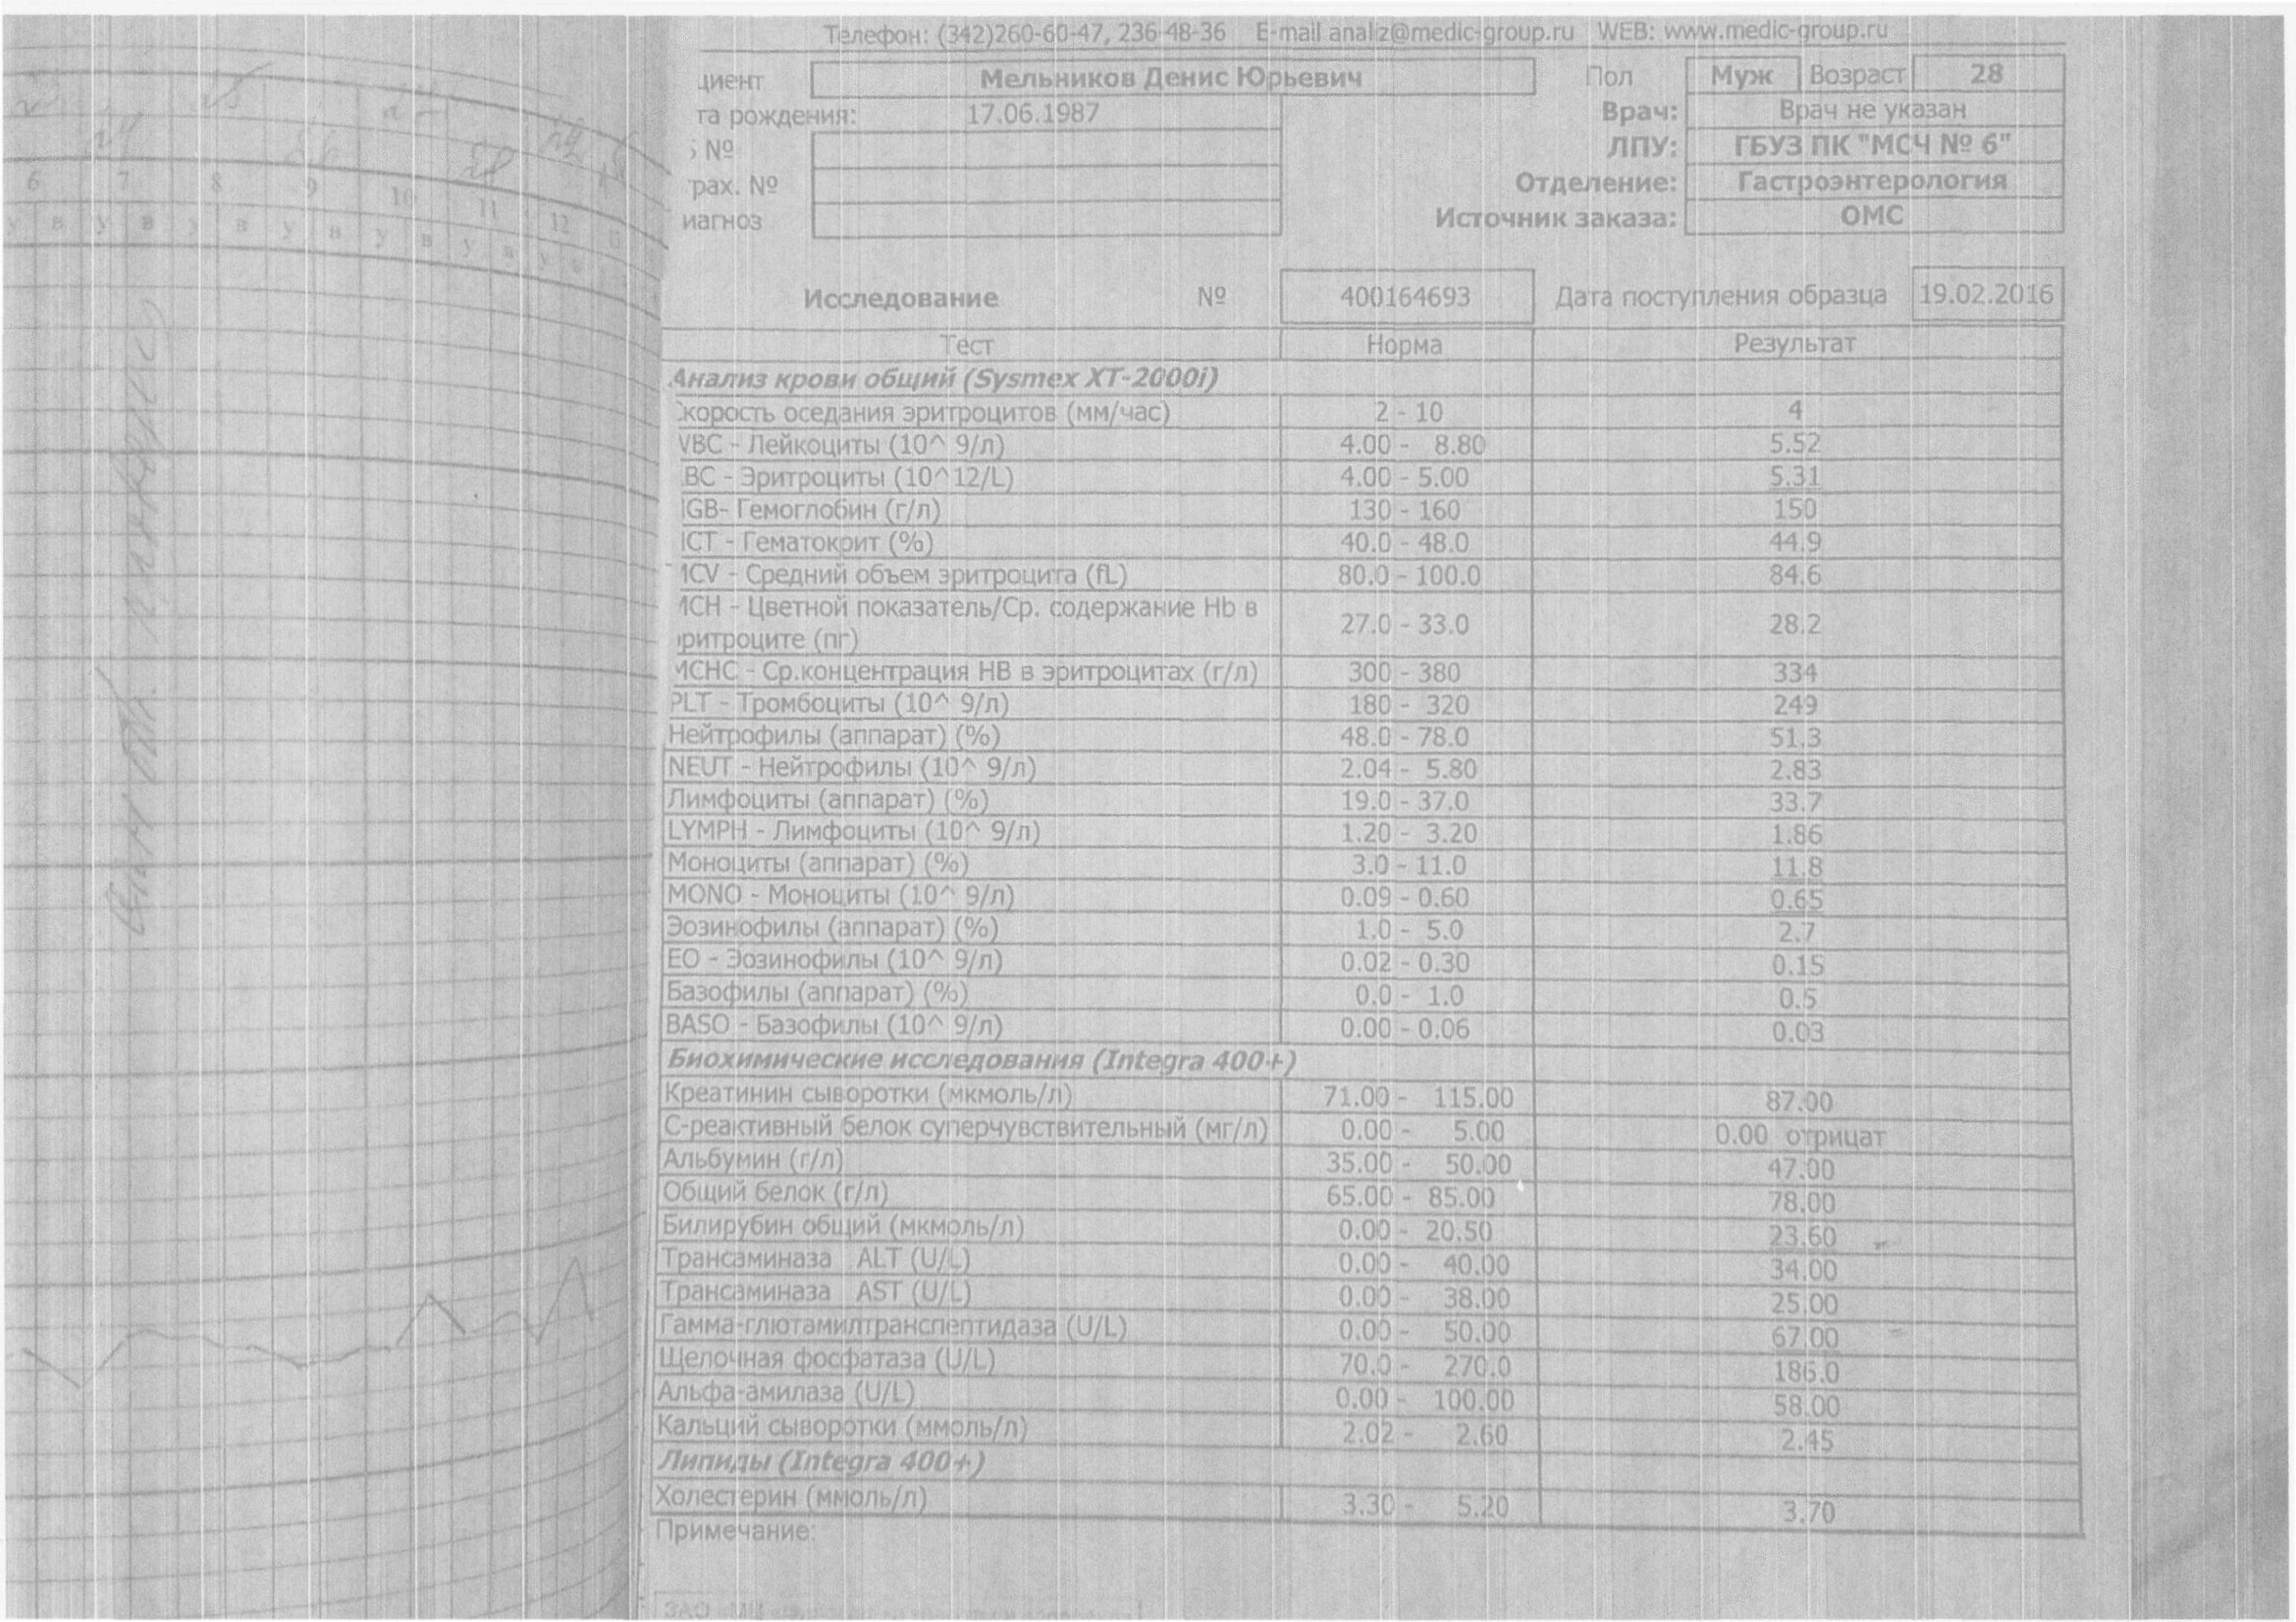 Телефон: (342)260-60-47, 236-48-36 E-mail analiz@medic-group.ru WEB: www.medic-group.ru
циент Мельников Денис Юрьевич Пол Муж Возраст 28
та рождения: 17.06.1987 Врач: Врач не указан
№ ЛПУ: ГБУЗ ПК "МСЧ № 6"
рах. № Отделение: Гастроэнтерология
иагноз Источник заказа: ОМС
6 7 8 9 10 11 12
у в у в у в у в у в у в у в
Исследование № 400164693 Дата поступления образца 19.02.2016
Тест Норма Результат
Анализ крови общий (Sysmex XT-2000i)
Скорость оседания эритроцитов (мм/час) 2 - 10 4
WBC - Лейкоциты (10^ 9/л) 4.00 - 8.80 5.52
BC - Эритроциты (10^12/L) 4.00 - 5.00 5.31
GB- Гемоглобин (г/л) 130 - 160 150
CT - Гематокрит (%) 40.0 - 48.0 44.9
MCV - Средний объем эритроцита (fL) 80.0 - 100.0 84.6
MCH - Цветной показатель/Ср. содержание Hb в
эритроците (пг) 27.0 - 33.0 28.2
MCHC - Ср.концентрация HB в эритроцитах (г/л) 300 - 380 334
PLT - Тромбоциты (10^ 9/л) 180 - 320 249
Нейтрофилы (аппарат) (%) 48.0 - 78.0 51.3
NEUT - Нейтрофилы (10^ 9/л) 2.04 - 5.80 2.83
Лимфоциты (аппарат) (%) 19.0 - 37.0 33.7
LYMPH - Лимфоциты (10^ 9/л) 1.20 - 3.20 1.86
Моноциты (аппарат) (%) 3.0 - 11.0 11.8
MONO - Моноциты (10^ 9/л) 0.09 - 0.60 0.65
Эозинофилы (аппарат) (%) 1.0 - 5.0 2.7
EO - Эозинофилы (10^ 9/л) 0.02 - 0.30 0.15
Базофилы (аппарат) (%) 0.0 - 1.0 0.5
BASO - Базофилы (10^ 9/л) 0.00 - 0.06 0.03
Биохимические исследования (Integra 400+)
Креатинин сыворотки (мкмоль/л) 71.00 - 115.00 87.00
С-реактивный белок суперчувствительный (мг/л) 0.00 - 5.00 0.00 отрицат
Альбумин (г/л) 35.00 - 50.00 47.00
Общий белок (г/л) 65.00 - 85.00 78.00
Билирубин общий (мкмоль/л) 0.00 - 20.50 23.60
Трансаминаза ALT (U/L) 0.00 - 40.00 34.00
Трансаминаза AST (U/L) 0.00 - 38.00 25.00
Гамма-глютамилтранспептидаза (U/L) 0.00 - 50.00 67.00
Щелочная фосфатаза (U/L) 70.0 - 270.0 186.0
Альфа-амилаза (U/L) 0.00 - 100.00 58.00
Кальций сыворотки (ммоль/л) 2.02 - 2.60 2.45
Липиды (Integra 400+)
Холестерин (ммоль/л) 3.30 - 5.20 3.70
Примечание: